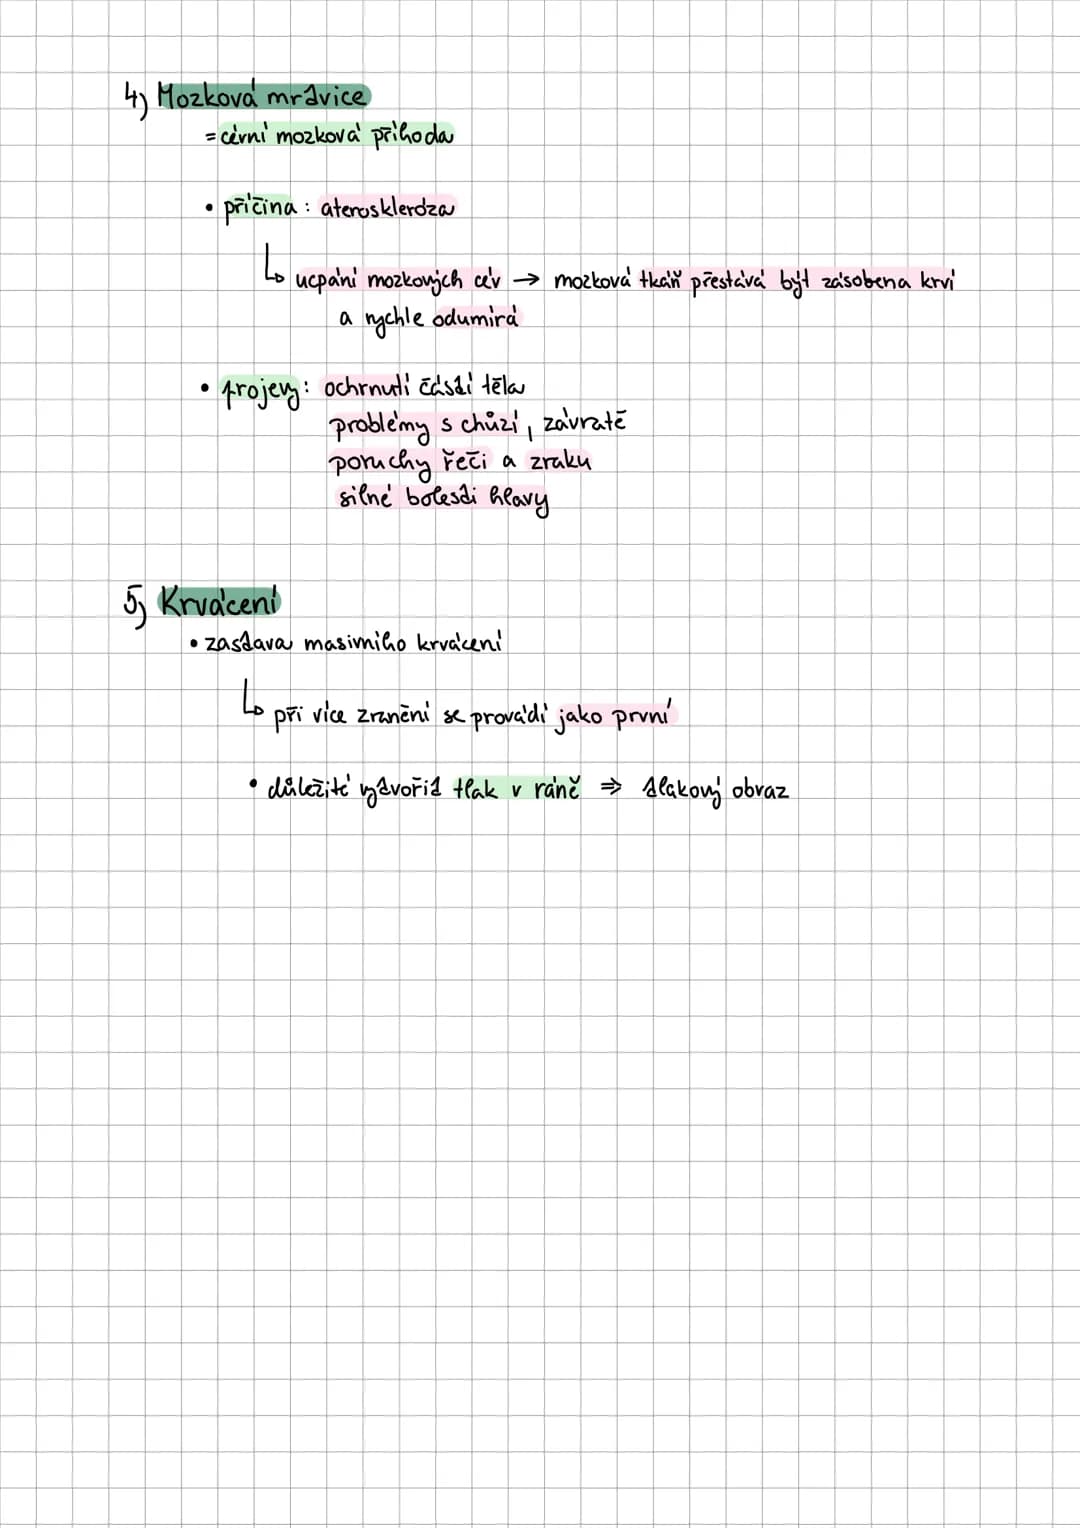 4) Mozková mrtvice
= cévní mozková příhoda
• příčina : ateroskleróza
↳ ucpání mozkových cév → mozková tkáň přestává být zásobena krví
a rychle odumírá
• projevy : ochrnutí částí těla
problémy s chůzí, závratě
poruchy řeči a zraku
silné bolesti hlavy
5) Krvácení
• zástava masivního krvácení
↳ při více zranění se provádí jako první
• důležité vytvořit tlak v ráně ⇒ tlakový obvaz